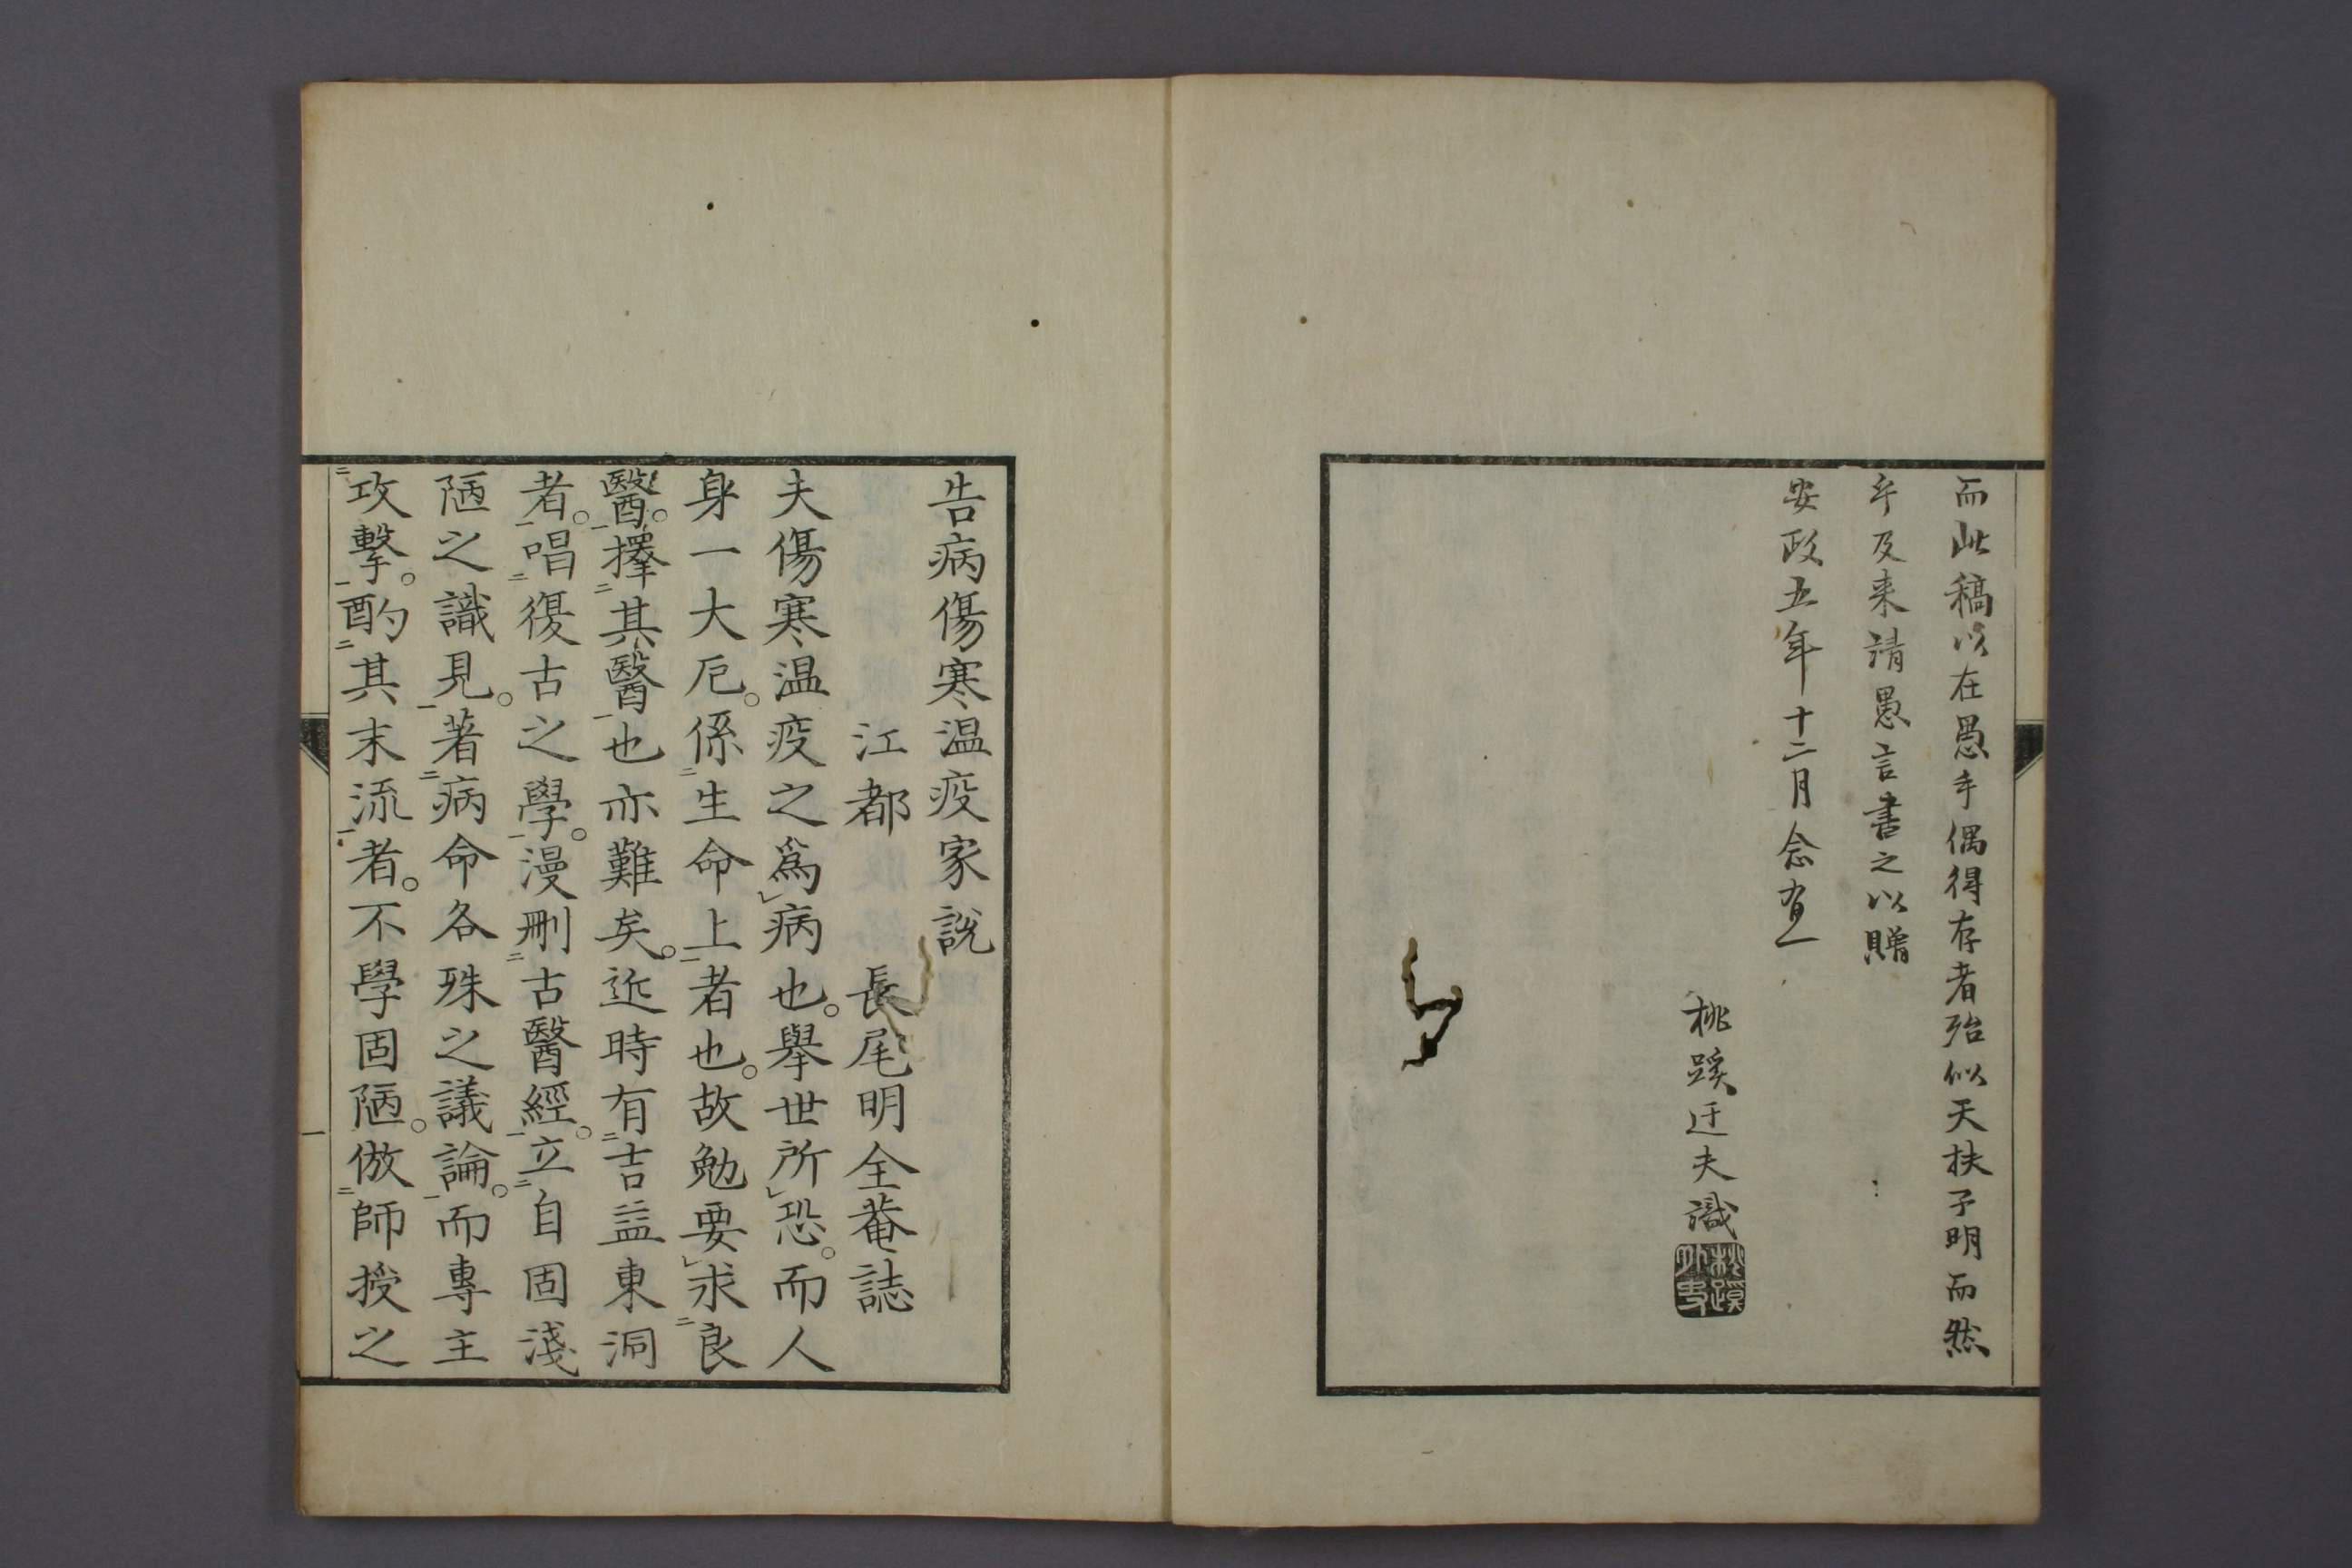 而此稿以在愚手偶得存者殆似天扶予明而然
乎及来請愚言書之以贈
安政五年十二月念有一
桃蹊迂夫識
桃蹊外史
告病傷寒温疫家説
江都　長尾明全菴誌
夫傷寒温疫之爲病也。舉世所恐。而人
身一大厄。係生命上者也。故勉要求良
醫。擇其醫也亦難矣。近時有吉益東洞
者。唱復古之學。漫刪古醫經。立自固淺
陋之識見。著病命各殊之議論。而專主
攻擊。酌其末流者。不學固陋。倣師授之
一